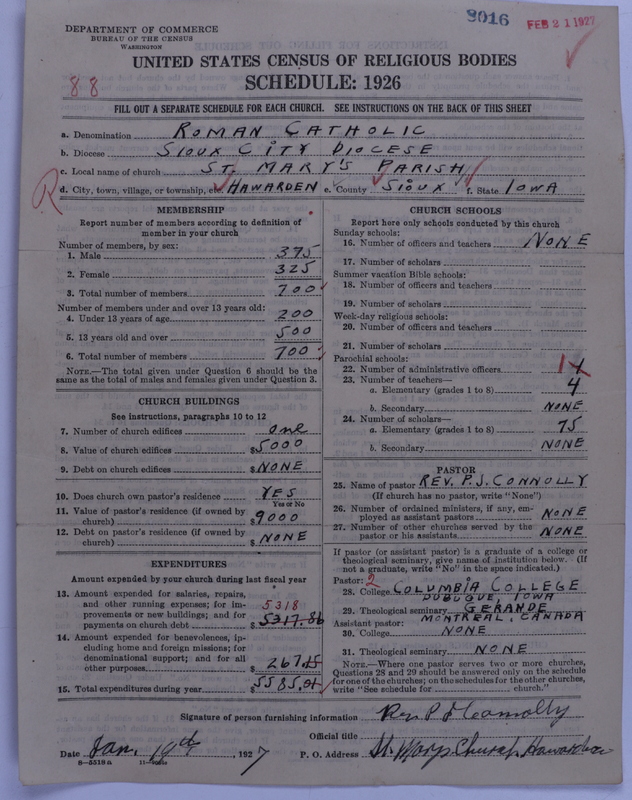 DEPARTMENT OF COMMERCE
BUREAU OF THE CENSUS
WASHINGTON
9016
FEB 21 1927
UNITED STATES CENSUS OF RELIGIOUS BODIES
SCHEDULE: 1926
88
FILL OUT A SEPARATE SCHEDULE FOR EACH CHURCH. SEE INSTRUCTIONS ON THE BACK OF THIS SHEET
a. Denomination ROMAN CATHOLIC
b. Diocese SIOUX CITY DIOCESE
c. Local name of church ST. MARY'S PARISH
R
d. City, town, village, or township, etc. HAWARDEN e. County SIOUX f. State IOWA
MEMBERSHIP
Report number of members according to definition of
member in your church
Number of members, by sex:
1. Male 375
2. Female 325
3. Total number of members 700
Number of members under and over 13 years old:
4. Under 13 years of age 200
5. 13 years old and over 500
6. Total number of members 700
NOTE.—The total given under Question 6 should be the
same as the total of males and females given under Question 3.
CHURCH BUILDINGS
See instructions, paragraphs 10 to 12
7. Number of church edifices one
8. Value of church edifices $5000
9. Debt on church edifices $NONE
10. Does church own pastor's residence YES
Yes or No
11. Value of pastor's residence (if owned by
church) $9000
12. Debt on pastor's residence (if owned by
church) $NONE
EXPENDITURES
Amount expended by your church during last fiscal year
13. Amount expended for salaries, repairs,
and other running expenses; for im-
provements or new buildings; and for 5318
payments on church debt $5317.86
14. Amount expended for benevolences, in-
cluding home and foreign missions; for
denominational support; and for all
other purposes $267.15
15. Total expenditures during year $5585.01
CHURCH SCHOOLS
Report here only schools conducted by this church
Sunday schools:
16. Number of officers and teachers NONE
17. Number of scholars
Summer vacation Bible schools:
18. Number of officers and teachers
19. Number of scholars
Week-day religious schools:
20. Number of officers and teachers
21. Number of scholars
Parochial schools:
22. Number of administrative officers 1
23. Number of teachers—
a. Elementary (grades 1 to 8) 4
b. Secondary NONE
24. Number of scholars—
a. Elementary (grades 1 to 8) 75
b. Secondary NONE
PASTOR
25. Name of pastor REV. P. J. CONNOLLY
(If church has no pastor, write "None")
26. Number of ordained ministers, if any, em-
ployed as assistant pastors NONE
27. Number of other churches served by the
pastor or his assistants NONE
If pastor (or assistant pastor) is a graduate of a college or
theological seminary, give name of institution below. (If
not a graduate, write "No" in the space indicated.)
Pastor: 2
28. College COLUMBIA COLLEGE
DUBUQUE, IOWA
29. Theological seminary GERANDE
MONTREAL, CANADA
Assistant pastor:
30. College NONE
31. Theological seminary NONE
NOTE.—Where one pastor serves two or more churches,
Questions 28 and 29 should be answered only on the schedule
for one of the churches; on the schedules for the other churches,
write "See schedule for church."
Signature of person furnishing information Rev. P J Connolly
Official title
Date Jan. 19th, 1927 P. O. Address St. Marys Church, Hawarden
8—5518a